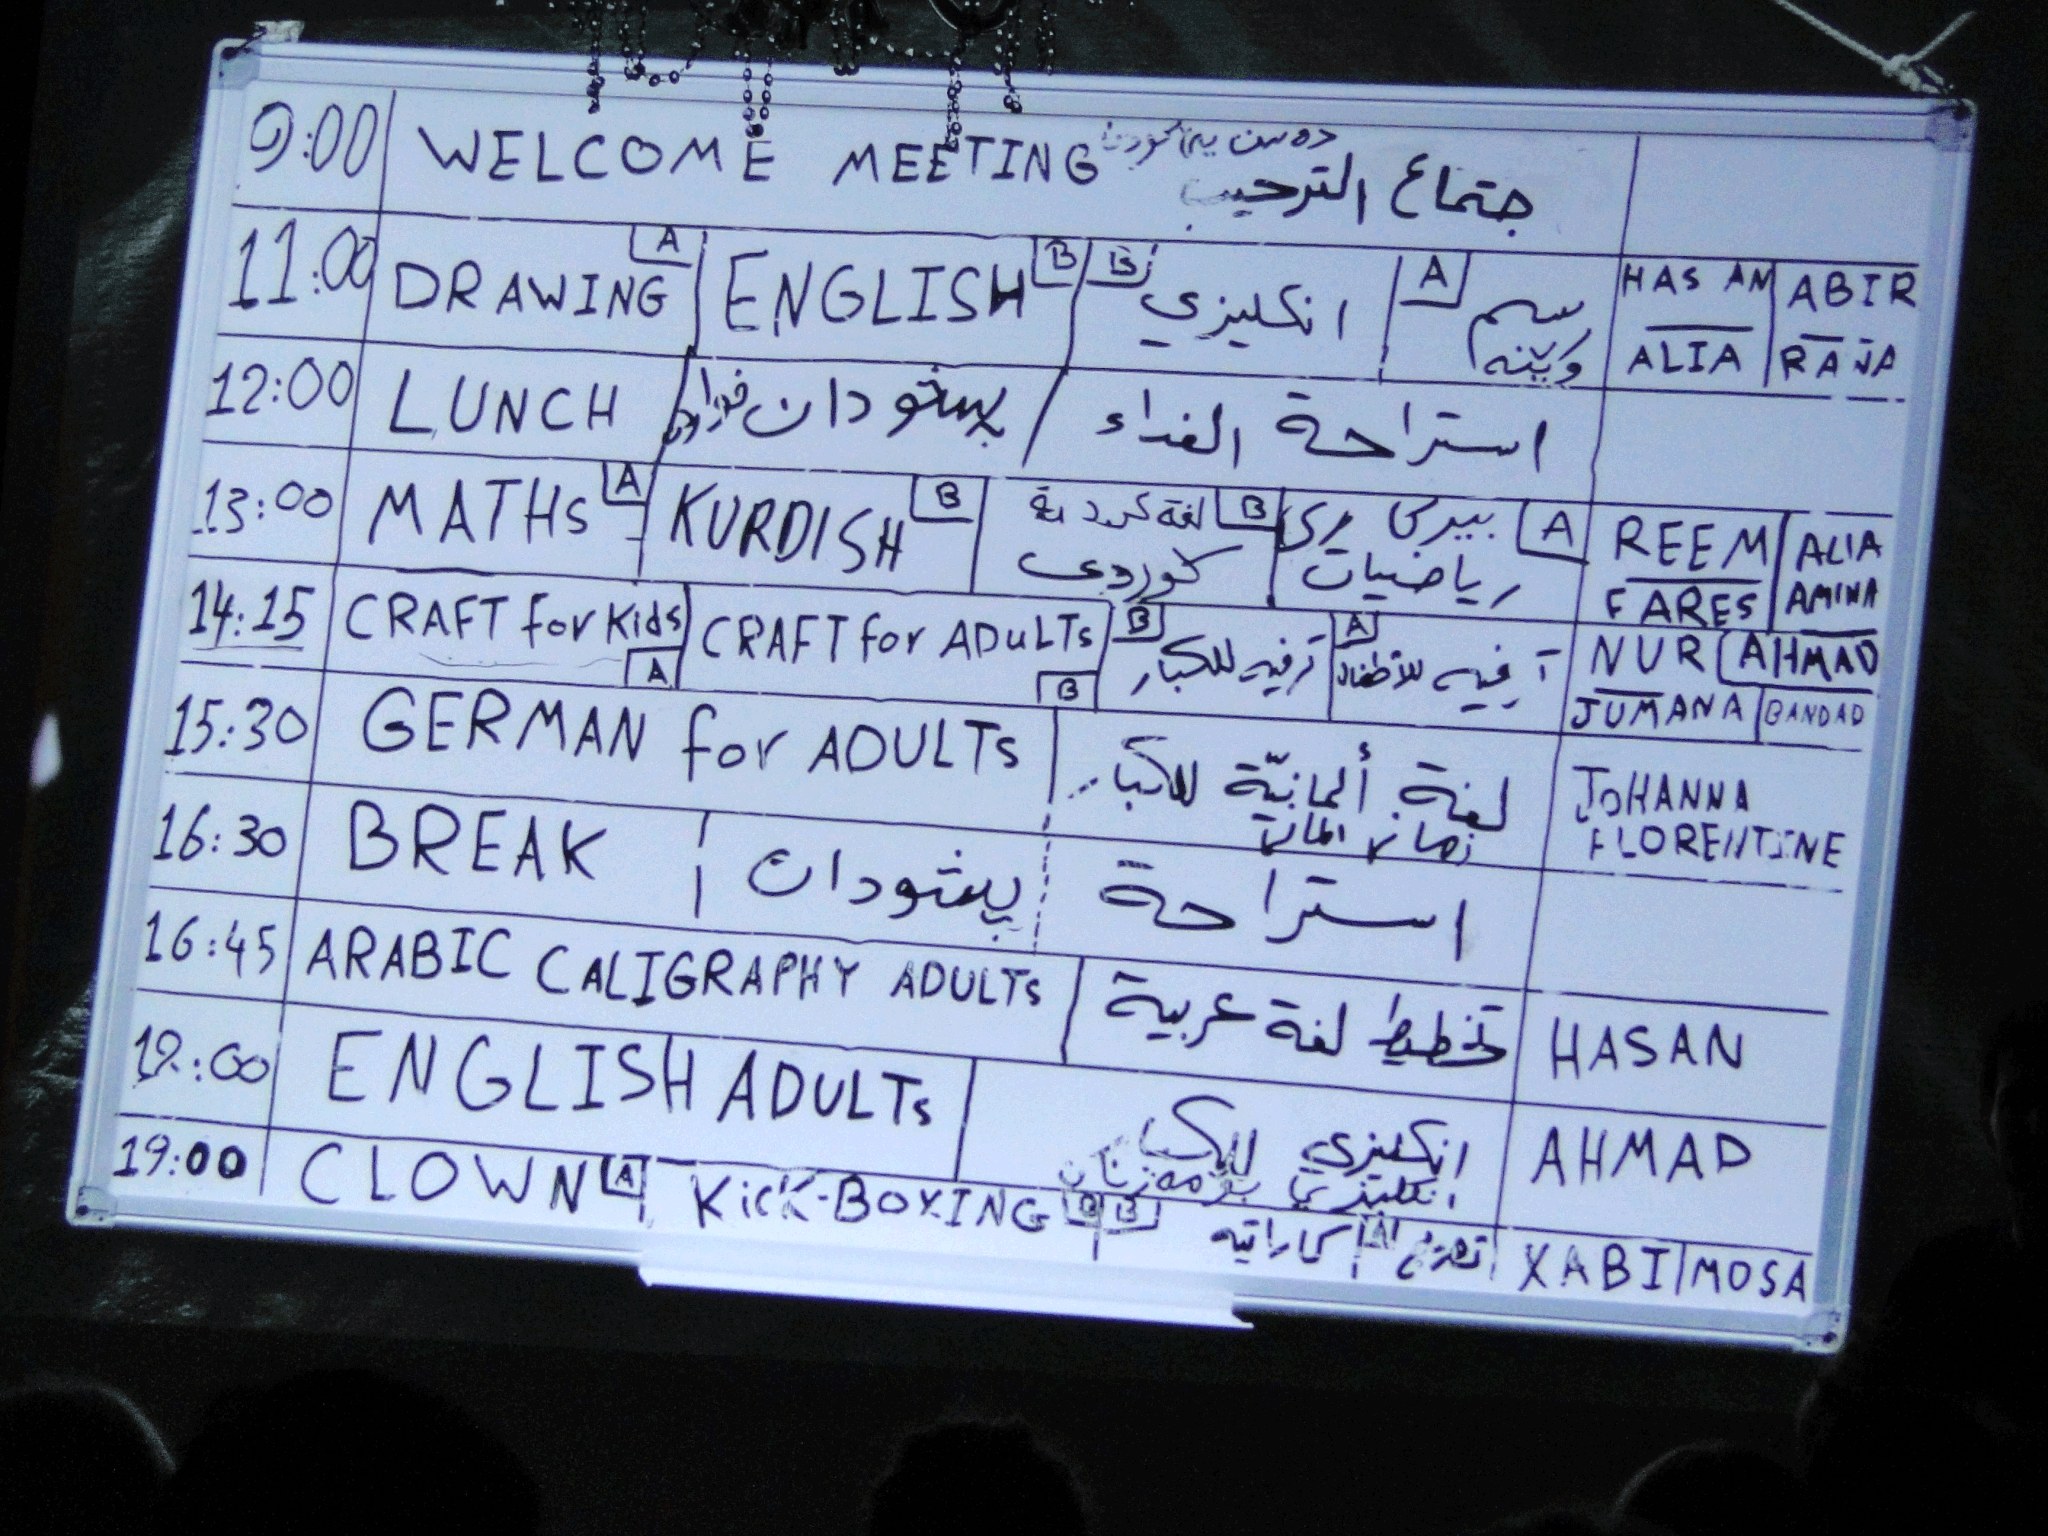 9:00 WELCOME MEETING
جتماع الترحيب
11:00 DRAWING A ENGLISH B B انكليزي A رسم وێنه HASAN ALIA ABIR RANA
12:00 LUNCH پشودان استراحة الغداء
13:00 MATHs A KURDISH B لغة كردية كوردى B بیرکاری رياضيات A REEM FARES ALIA AMINA
14:15 CRAFT for Kids A CRAFT for ADULTs B B ترفيه للكبار A ترفيه للأطفال NUR JUMANA AHMAD BANDAD
15:30 GERMAN for ADULTs لغة ألمانيّة للكبار JOHANNA FLORENTINE
16:30 BREAK پشودان استراحة
16:45 ARABIC CALIGRAPHY ADULTs تخطيط لغة عربية HASAN
ENGLISH ADULTs انكليزي للكبار AHMAD
انكليزي
19:00 CLOWN A KicK-BOXING B B كاراتيه A XABI MOSA